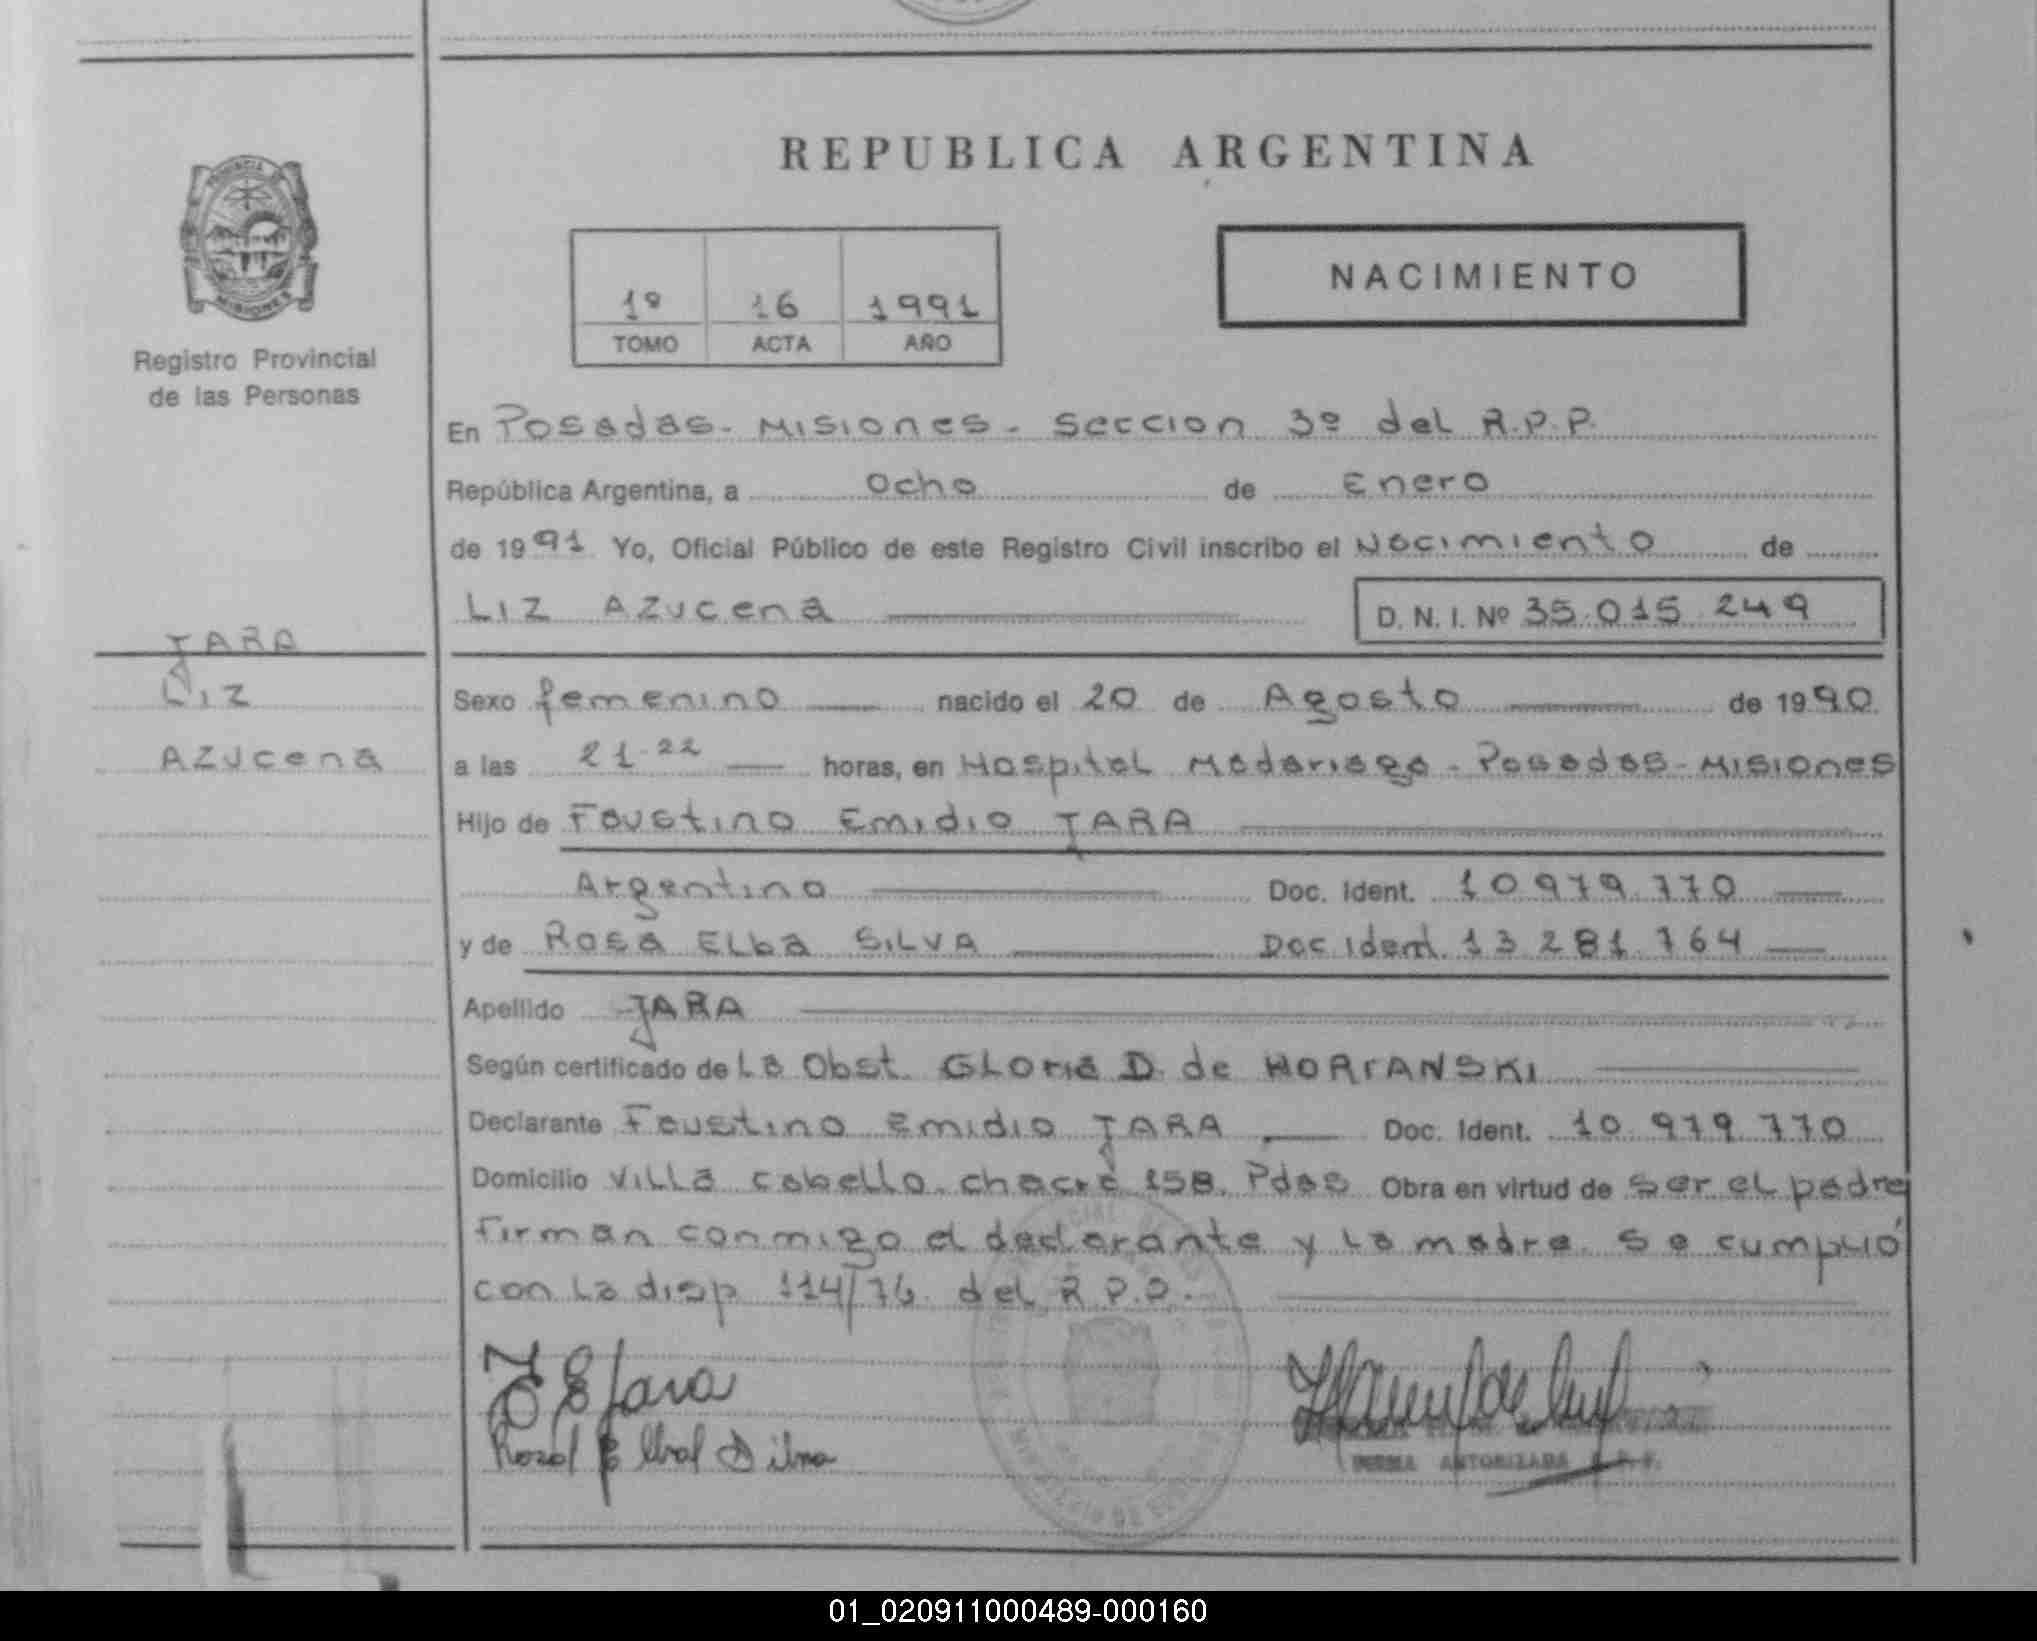 REPUBLICA ARGENTINA
PROVINCIA
MISIONES
Registro Provincial
de las Personas
1º 16 1991
TOMO ACTA AÑO
NACIMIENTO
En Posadas - Misiones - Seccion 3º del R.P.P.
República Argentina, a ocho de Enero
de 1991 Yo, Oficial Público de este Registro Civil inscribo el Nacimiento de
Liz Azucena D. N. I. Nº 35.015.249
JARA
Liz
Azucena
Sexo femenino nacido el 20 de Agosto de 1990
a las 21.22 horas, en Hospital Madariaga - Posadas - Misiones
Hijo de Faustino Emidio JARA
Argentino Doc. Ident. 10.979.770
y de Rosa Elba SILVA Doc Ident. 13.281.764
Apellido JARA
Según certificado de La Obst. Gloria D. de HORIANSKI
Declarante Faustino Emidio JARA Doc. Ident. 10.979.770
Domicilio Villa Cabello. chacra 158. Pdas Obra en virtud de ser el padre
firman conmigo el declarante y la madre. Se cumplió
con la disp 114/76. del R.P.P.
F E Jara
Rosa Elba Silva
FIRMA AUTORIZADA R.P.P.
01_020911000489-000160